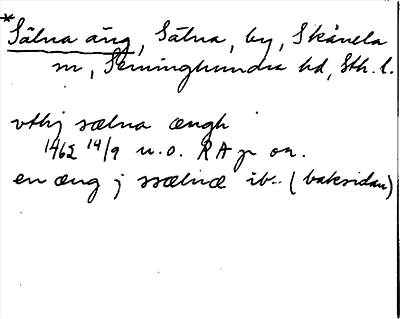 *Sälna äng, Sälna, by, Skånela
sn, Seminghundra hd, Sth. l.
vthj sælna ængh
1462 14/9 u.o. RA p or.
en æng j sælnæ ib. (baksidan)